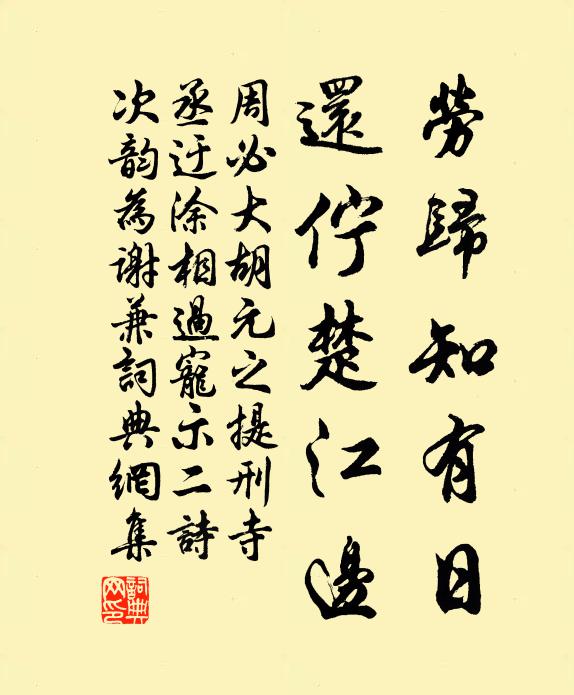 勞歸知有日
還佇楚江邊
周必大胡元之提刑寺
丞迂涂相過寵示二詩
次韵為謝兼詞典網集
詞典网印